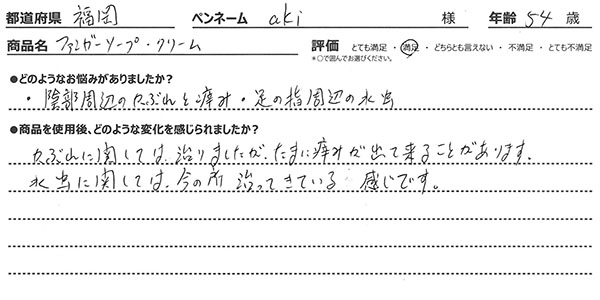 都道府県 福岡 ペンネーム aki 様 年齢 54 歳
商品名 ファンガーソープ・クリーム 評価 とても満足・満足・どちらとも言えない・不満足・とても不満足
*○で囲んでお選びください。
●どのようなお悩みがありましたか?
・陰部周辺のかぶれと痒み・足の指周辺の水虫
●商品を使用後、どのような変化を感じられましたか?
かぶれに関しては、治りましたが、たまに痒みが出て来ることがあります。
水虫に関しては、今の所 治ってきている 感じです。